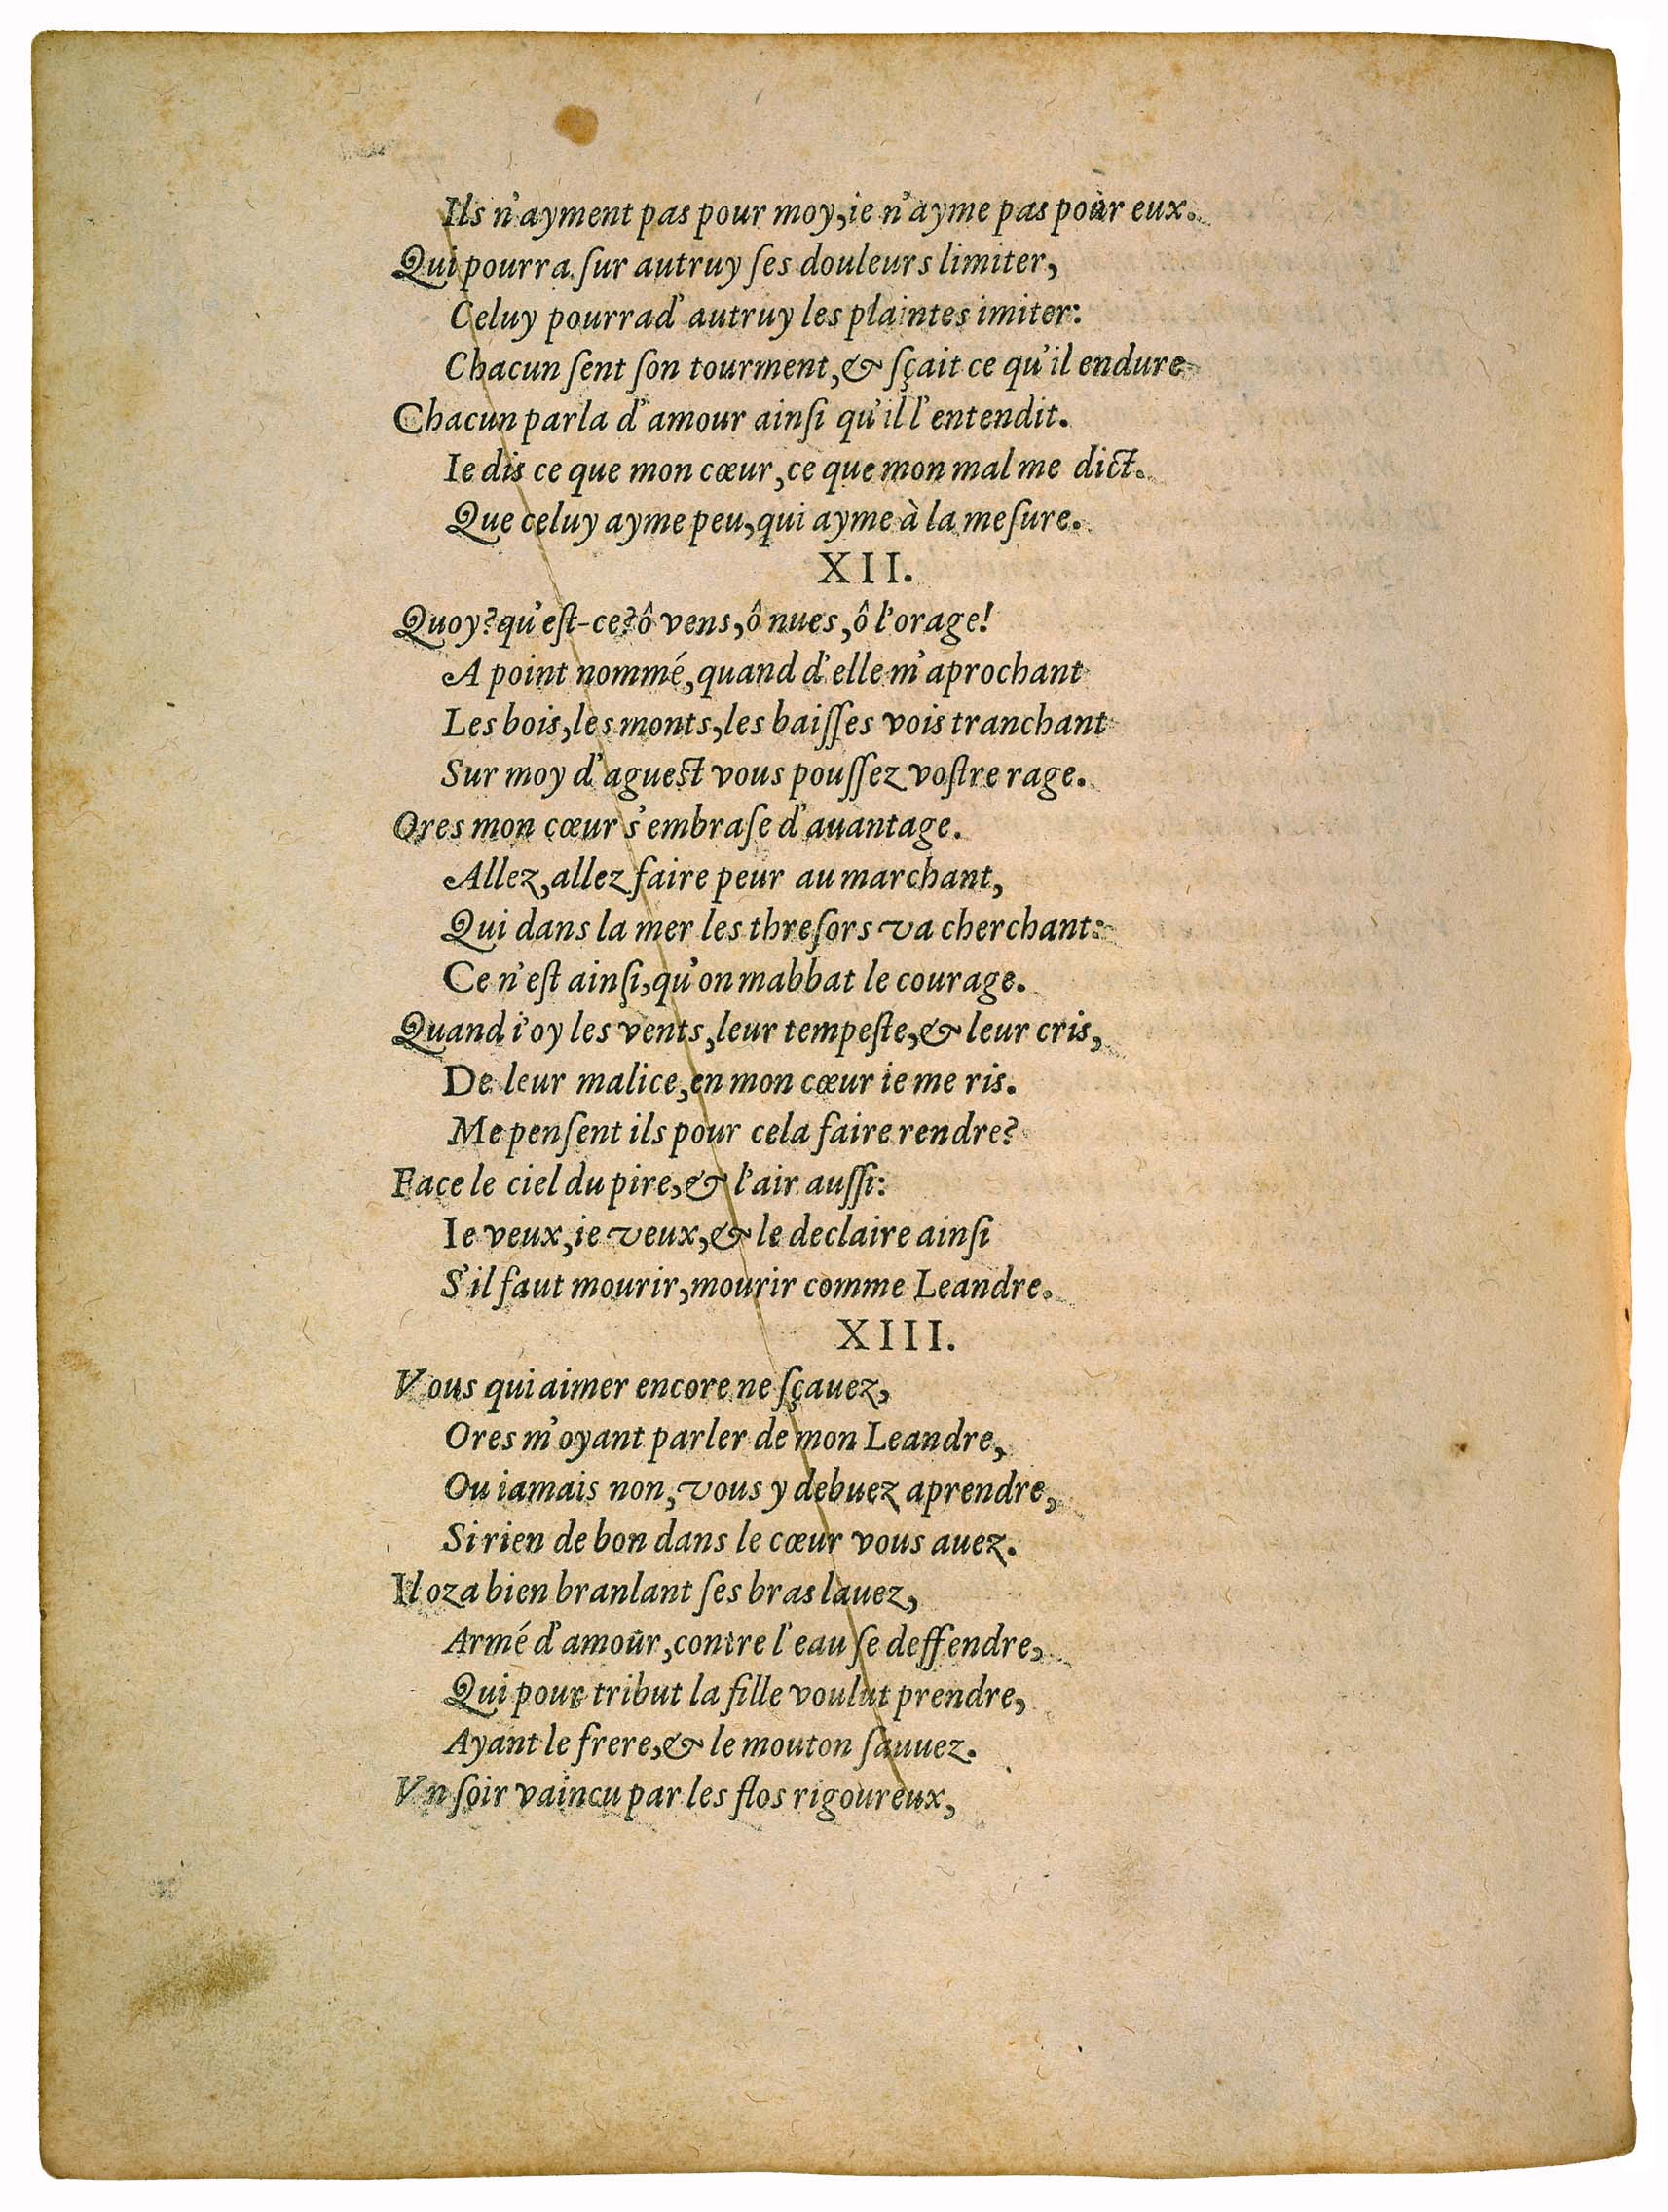 Ils n'ayment pas pour moy, ie n'ayme pas pour eux.
Qui pourra ſur autruy ſes douleurs limiter,
Celuy pourra d'autruy les plaintes imiter:
Chacun ſent ſon tourment, & ſçait ce qu'il endure
Chacun parla d'amour ainſi qu'il l'entendit.
Ie dis ce que mon cœur, ce que mon mal me dict.
Que celuy ayme peu, qui ayme à la meſure.
XII.
Quoy? qu'eſt-ce? ô vens, ô nues, ô l'orage!
A point nommé, quand d'elle m'aprochant
Les bois, les monts, les baiſſes vois tranchant
Sur moy d'aguest vous pouſſez voſtre rage.
Ores mon cœur s'embraſe d'auantage.
Allez, allez faire peur au marchant,
Qui dans la mer les threſors va cherchant:
Ce n'eſt ainſi, qu'on mabbat le courage.
Quand i'oy les vents, leur tempeſte, & leur cris,
De leur malice, en mon cœur ie me ris.
Me penſent ils pour cela faire rendre?
Face le ciel du pire, & l'air auſſi:
Ie veux, ie veux, & le declaire ainſi
S'il faut mourir, mourir comme Leandre.
XIII.
Vous qui aimer encore ne ſçauez,
Ores m'oyant parler de mon Leandre,
Ou iamais non, vous y debuez aprendre,
Si rien de bon dans le cœur vous auez.
Il oza bien branlant ſes bras lauez,
Armé d'amour, contre l'eau ſe deffendre,
Qui pour tribut la fille voulut prendre,
Ayant le frere, & le mouton ſauuez.
Vn ſoir vaincu par les flos rigoureux,